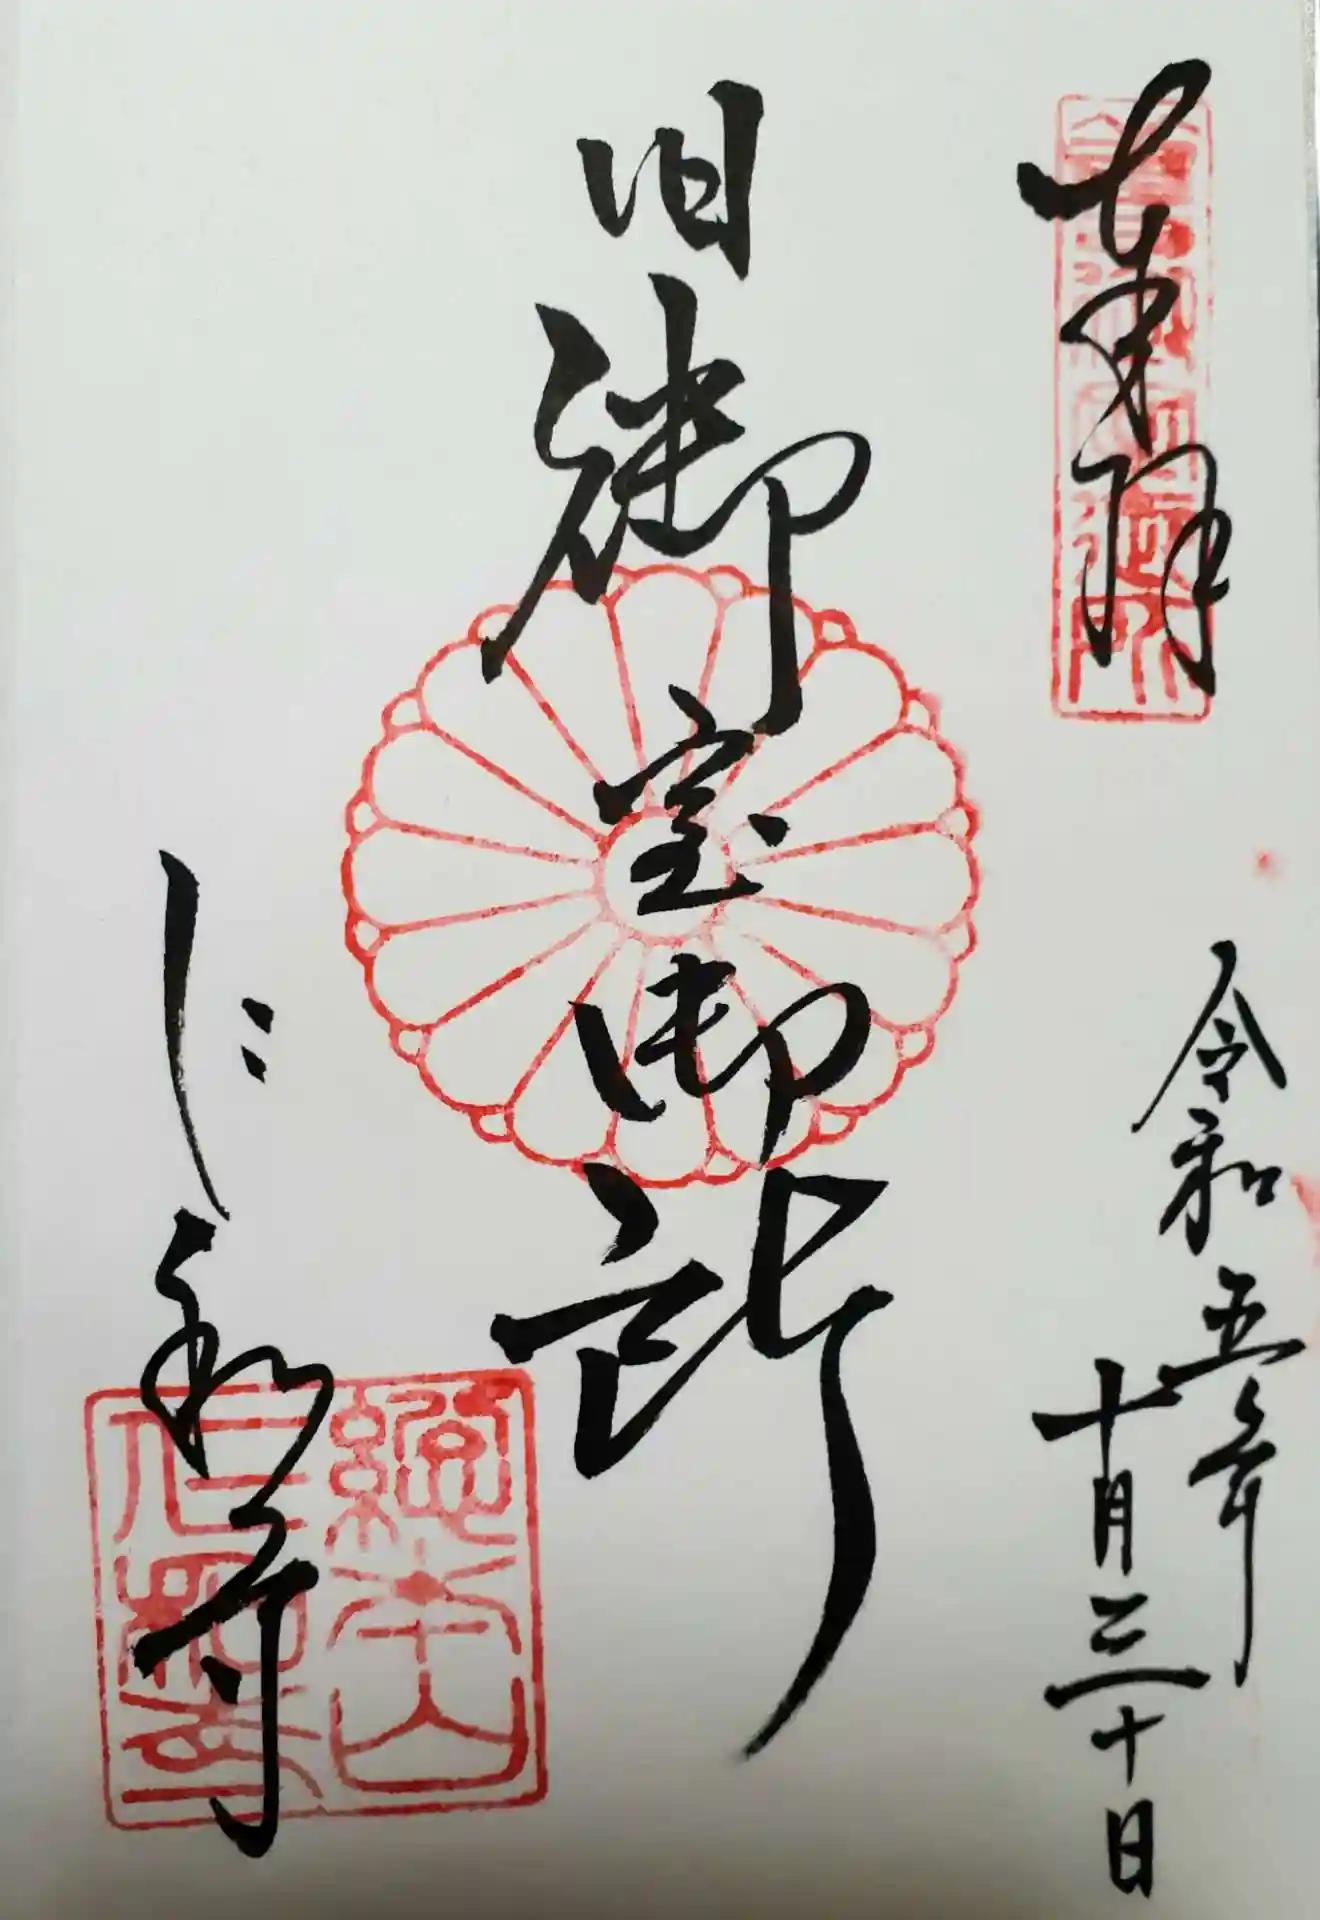 奉拝
令和五年
十月三十日
旧御室御所
仁和寺
總本山
仁和寺